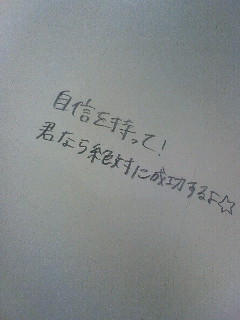 自信を持って!
君なら絶対に成功するよ☆